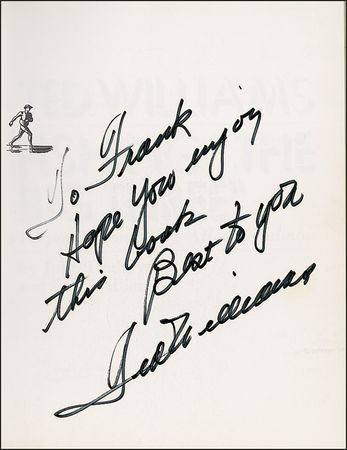 To Frank
Hope You enjoy
this book
Best to you
Ted Williams